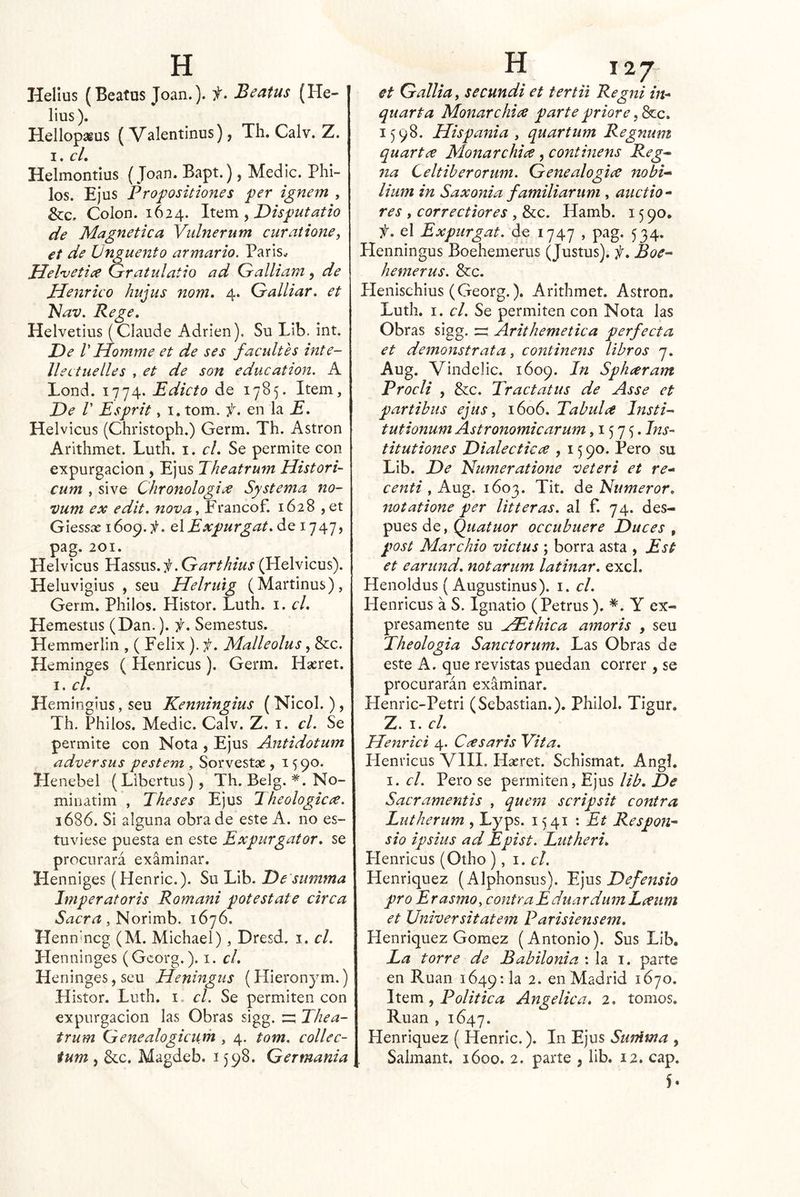 H
Helius (Beatus Joan.). ℣. Beatus (He-
lius).
Hellopæus (Valentinus), Th. Calv. Z.
1. cl.
Helmontius (Joan. Bapt.), Medic. Phi-
los. Ejus Propositiones per ignem,
&c. Colon. 1624. Item, Disputatio
de Magnetica Vulnerum curatione,
et de Unguento armario. Paris.
Helvetiæ Gratulatio ad Galliam, de
Henrico hujus nom. 4. Galliar. et
Nav. Rege.
Helvetius (Claude Adrien). Su Lib. int.
De l'Homme et de ses facultès inte-
llectuelles, et de son education. A
Lond. 1774. Edicto de 1785. Item,
De l' Esprit, 1. tom. ℣. en la E.
Helvicus (Christoph.) Germ. Th. Astron
Arithmet. Luth. 1. cl. Se permite con
expurgacion, Ejus Theatrum Histori-
cum, sive Chronologiæ Systema no-
vum ex edit. nova, Francof. 1628, et
Giessæ 1609. ℣. el Expurgat. de 1747,
pag. 201.
Helvicus Hassus. ℣. Garthius (Helvicus).
Heluvigius, seu Helruig (Martinus),
Germ. Philos. Histor. Luth. 1. cl.
Hemestus (Dan.). ℣. Semestus.
Hemmerlin, (Felix). ℣. Malleolus, &c.
Heminges (Henricus). Germ. Hæret.
1. cl.
Hemingius, seu Kenningius (Nicol.),
Th. Philos. Medic. Calv. Z. 1. cl. Se
permite con Nota, Ejus Antidotum
adversus pestem, Sorvestæ, 1590.
Henebel (Libertus), Th. Belg. *. No-
minatim, Theses Ejus Theologicæ.
1686. Si alguna obra de este A. no es-
tuviese puesta en este Expurgator. se
procurará exâminar.
Henniges (Henric.). Su Lib. De summa
Imperatoris Romani potestate circa
Sacra, Norimb. 1676.
Henníncg (M. Michael), Dresd. 1. cl.
Henninges (Georg.). 1. cl.
Heninges, seu Heningus (Hieronym.)
Histor. Luth. 1. cl. Se permiten con
expurgacion las Obras sigg. = Thea-
trum Genealogicum, 4. tom. collec-
tum, &c. Magdeb. 1598. Germania
H 127
et Gallia, secundi et tertii Regni in-
quarta Monarchiæ parte priore, &c.
1598. Hispania, quartum Regnum
quartæ Monarchiæ, continens Reg-
na Celtiberorum. Genealogiæ nobi-
lium in Saxonia familiarum, auctio-
res, correctiores, &c. Hamb. 1590.
℣. el Expurgat. de 1747, pag. 534.
Henningus Boehemerus (Justus). ℣. Boe-
hemerus. &c.
Henischius (Georg.). Arithmet. Astron.
Luth. 1. cl. Se permiten con Nota las
Obras sigg. = Arithemetica perfecta
et demonstrata, continens libros 7.
Aug. Vindelic. 1609. In Sphæram
Procli, &c. Tractatus de Asse et
partibus ejus, 1606. Tabulæ Insti-
tutionum Astronomicarum, 1575. Ins-
titutiones Dialecticæ, 1590. Pero su
Lib. De Numeratione veteri et re-
centi, Aug. 1603. Tit. de Numeror.
notatione per litteras. al f. 74. des-
pues de, Quatuor occubuere Duces,
post Marchio victus; borra asta, Est
et earund. notarum latinar. excl.
Henoldus (Augustinus). 1. cl.
Henricus à S. Ignatio (Petrus). *. Y ex-
presamente su Æthica amoris, seu
Theologia Sanctorum. Las Obras de
este A. que revistas puedan correr, se
procurarán exâminar.
Henric-Petri (Sebastian.). Philol. Tigur.
Z. 1. cl.
Henrici 4. Cæsaris Vita.
Henricus VIII. Hæret. Schismat. Angl.
1. cl. Pero se permiten, Ejus lib. De
Sacramentis, quem scripsit contra
Lutherum, Lyps. 1541: Et Respon-
sio ipsius ad Epist. Lutheri.
Henricus (Otho), 1. cl.
Henriquez (Alphonsus). Ejus Defensio
pro Erasmo, contra Eduardum Læum
et Universitatem Parisiensem.
Henriquez Gomez (Antonio). Sus Lib.
La torre de Babilonia: la 1. parte
en Ruan 1649: la 2. en Madrid 1670.
Item, Politica Angelica. 2. tomos.
Ruan, 1647.
Henriquez (Henric.). In Ejus Summa,
Salmant. 1600. 2. parte, lib. 12. cap.
5.